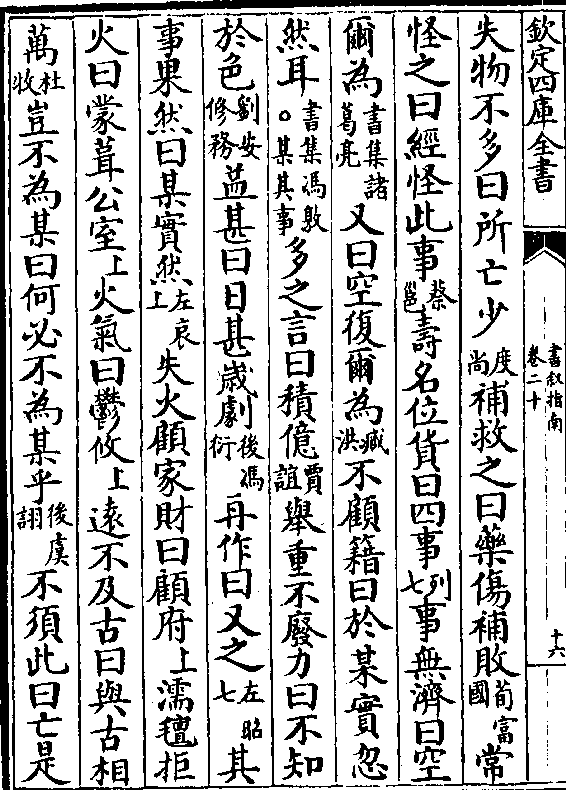 欽定四庫全書
書叙指南
卷二十
十六
失物不多曰所亡少度尚補救之曰藥傷補敗荀國富常
怪之曰經怪此事蔡邕壽名位貨曰四事列七事無濟曰空
爾為書集諸葛亮又曰空復爾為臧洪不顧籍曰於某實忽
然耳書集馮敦。某其事多之言曰積億賈誼舉重不廢力曰不知
於色劉安修務益甚曰日甚歲劇後馮衍再作曰又之左昭七其
事果然曰某實然左哀上失火顧家財曰顧府上濡氊拒
火曰蒙葺公室上火氣曰鬱攸上遠不及古曰與古相
萬杜牧豈不為某曰何必不為某乎後虞詡不須此曰亡是